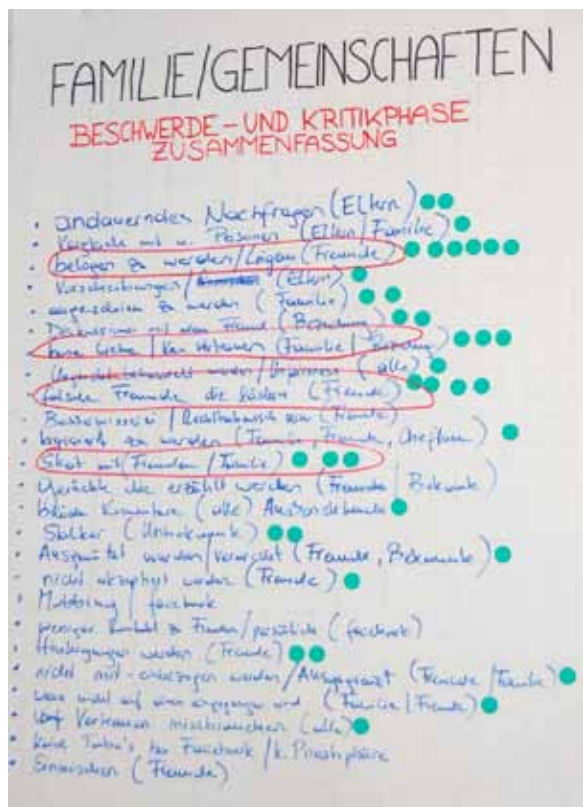 FAMILIE/GEMEINSCHAFTEN
BESCHWERDE- UND KRITIKPHASE
ZUSAMMENFASSUNG
· andauerndes Nachfragen (Eltern)
· Vergleiche mit a. Personen (Eltern/Familie)
· belogen zu werden/Lügen (Freunde)
· Vorschreibungen/ (Eltern)
· angeschrien zu werden (Familie)
· Diskussionen mit dem Freund (Beziehung)
· keine Liebe / Kein Vertrauen (Familie/Beziehung)
· (alle)
· falsche Freunde die lästern (Freunde)
· Besserwisserei / Rechthaberisch sein (Freunde)
· zu werden (Familie, Freunde, )
· Streit mit (Freunden/Familie)
· Gerüchte die erzählt werden (Freunde/Bekannte)
· blöde Komentare (alle) Außenstehende
· Stalker (Unbekannte)
· Ausgenützt werden/verarscht (Freunde, Bekannte)
· nicht akzeptiert werden (Freunde)
· Mobbing / facebook
· weniger Kontakt zu Freunden/persönliche (facebook)
· Hintergangen werden (Freunde)
· nicht mit-einbezogen werden/Ausgegrenzt (Freunde/Familie)
· wenn nicht auf einen eingegangen wird (Familie/Freunde)
· Vertrauen missbrauchen (alle)
· keine Tabu's bei Facebook /k. Privatsphäre
· Einmischen (Freunde)